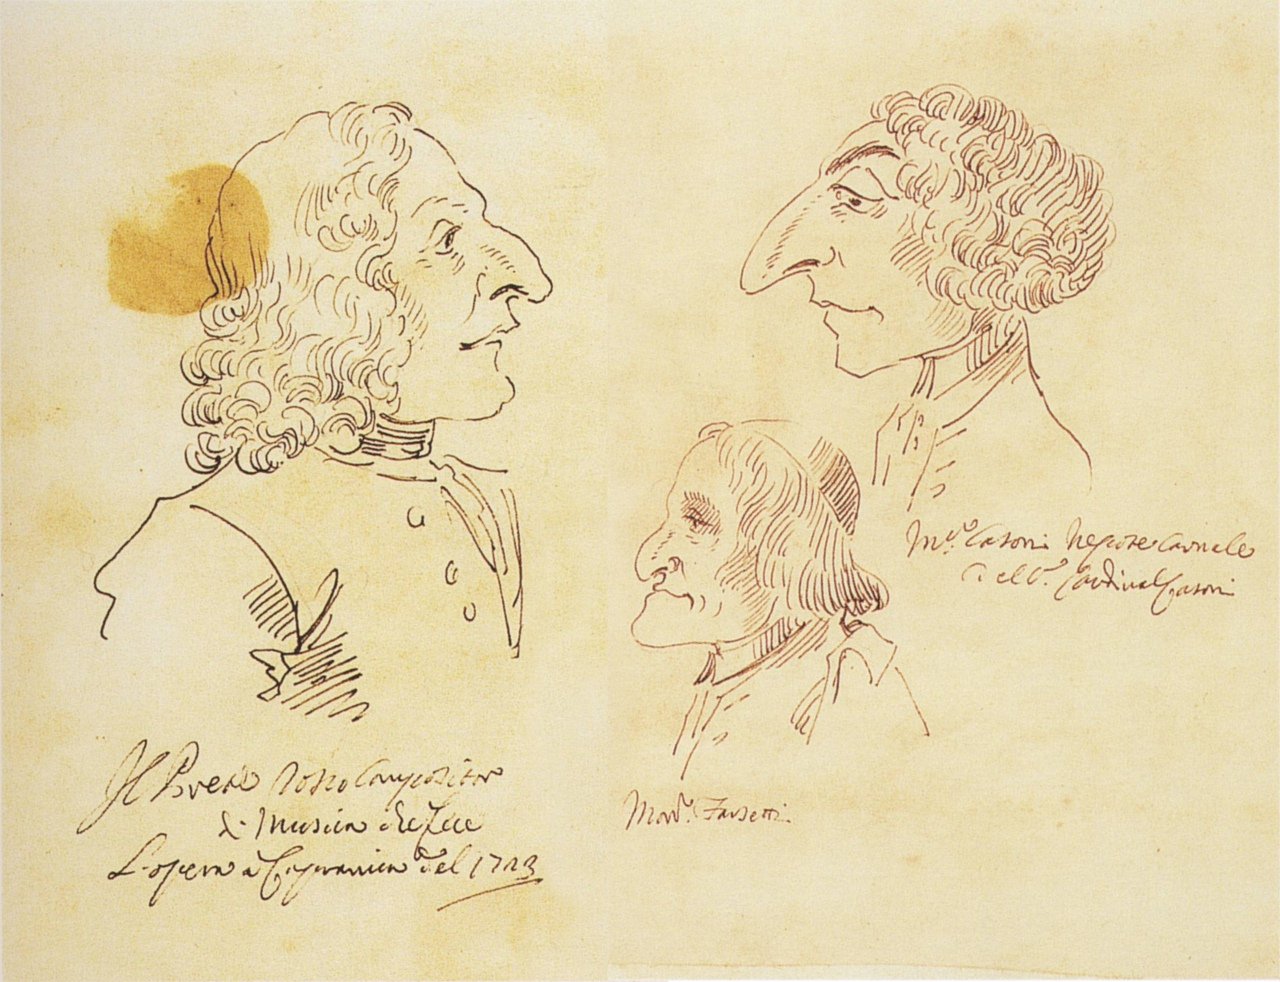 Il Prete rosso Compositor
di Musica che fece
L'opera a Capranica del 1723
Mr. Casoni Nepote Carnale
dell Cardinal Casoni
Mons.r Farsetti